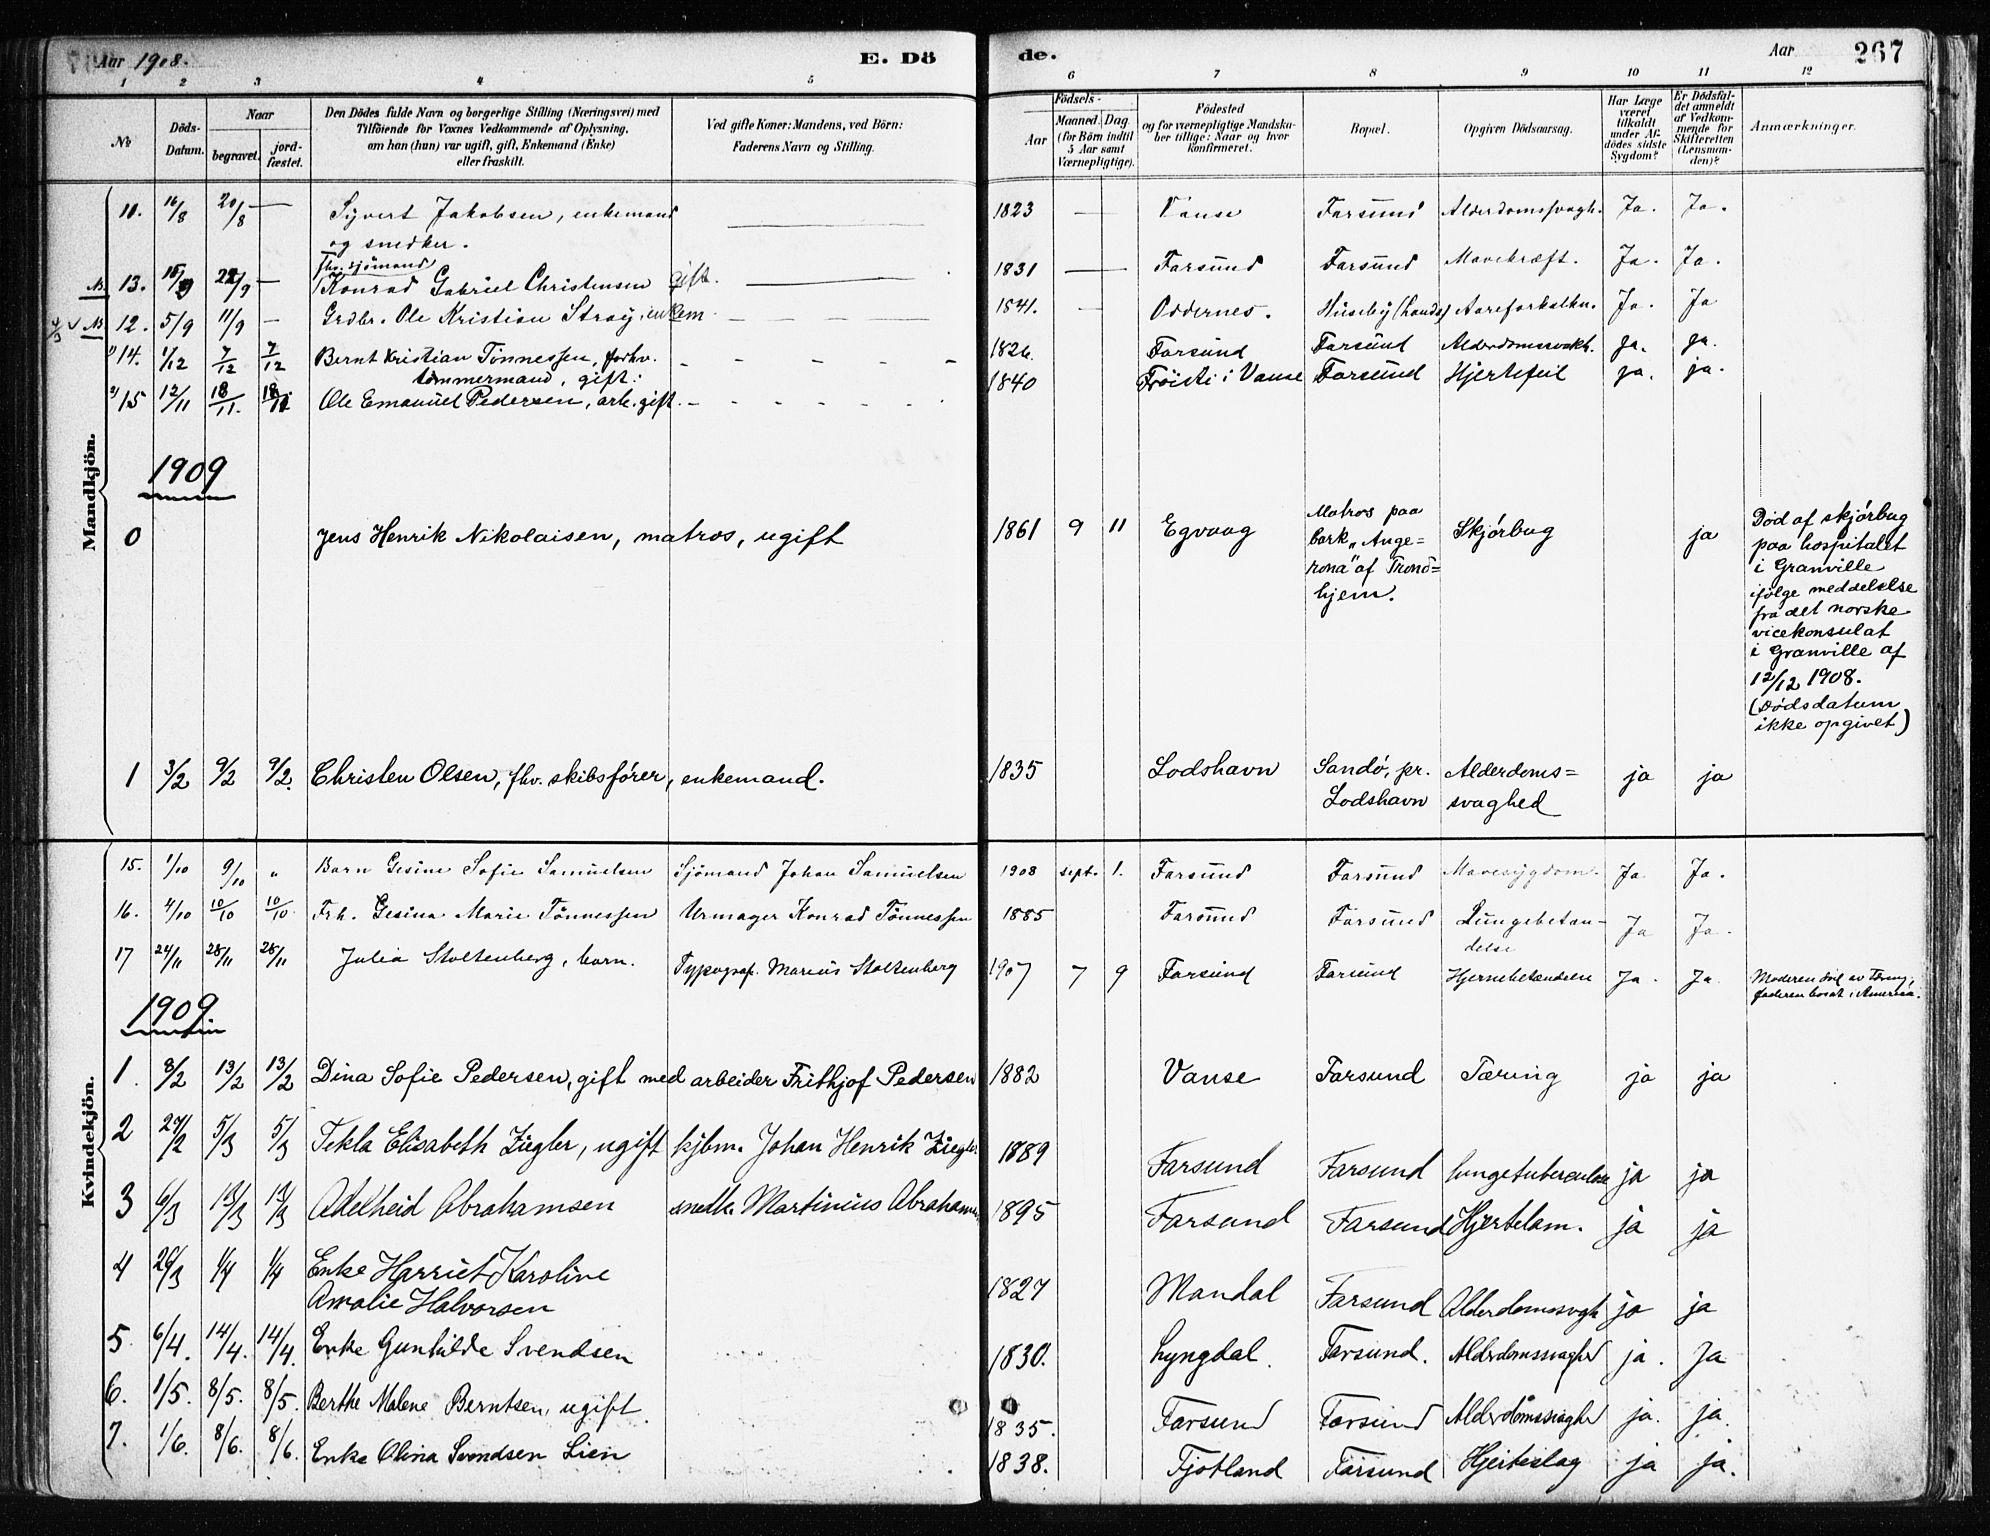 Aar 1908. E. Dö de. Aar 267
1 2 3 4 5 6 7 8 9 10 11 12
№
Döds-
Datum.
Naar
begravet.
jord-
fæstet.
Den Dödes fulde Navn og borgerlige Stilling (Næringsvei) med
Tilföiende for Voxnes Vedkommende af Oplysning,
om han (hun) var ugift, gift, Enkemand (Enke)
eller fraskilt.
Ved gifte Koner: Mandens, ved Börn:
Faderens Navn og Stilling.
Födsels-
Aar
Maaned. Dag.
(for Börn indtil
5 Aar samt
Værnepligtige).
Födested
og for værnepligtige Mandska-
ber tillige: Naar og hvor
konfirmeret.
Bopæl.
Opgiven Dödsaarsag.
Har Læge
været
tilkaldt
under Af-
dödes sidste
Sygdom?
Er Dödsfal-
det anmeldt
af Vedkom-
mende for
Skifteretten
(Lensman-
den)?
Anmærkninger.
Mandkjön.
10. 16/8 20/8 — Syvert Jakobsen, enkemand — 1823 — Vanse Farsund Alderdomssvagh. Ja. Ja.
og snedker.
fhv. sjömand
13. 22/9 — Konrad Gabriel Christensen gift. — 1831 — Farsund Farsund Mavekræft. Ja. Ja.
12. 5/9 11/9 — Grdbr. Ole Kristian Stray, enkem - 1841. Oddernes. Huseby (lands) Aareforkalkn. Ja. Ja
14. 1/12 7/12 7/12 Bernt Kristian Tönnessen, forhv. - - - - - 1826. Farsund Farsund Alderdomssvakh. ja. ja.
tömmermand, gift.
15 12/11 18/11. 18/11 Ole Emanuel Pedersen, arb. gift. - - - - - - 1840 Fröisti i Vanse Farsund Hjertefeil ja. ja.
1909
0 Jens Henrik Nikolaisen, matros, ugift 1861 9 11 Egvaag
Matros paa
bark „Ange-
rona" af Trond=
hjem.
Skjørbug ja
Død af skjørbug
paa hospitalet
i Granville
ifølge meddelelse
fra det norske
vicekonsulat
i Granville af
12/12 1908.
(Dødsdatum
ikke opgivet)
1 3/2 9/2 9/2. Christen Olsen, fhv. skibsfører, enkemand. 1835 Lodshavn Sandø, pr. Alderdoms= ja ja
Lodshavn svaghed
Kvindekjön.
15. 1/10 9/10 " Barn Gesine Sofie Samuelsen Sjömand Johan Samuelsen 1908 sept. 1. Farsund Farsund Mavesygdom. Ja Ja.
16. 4/10 10/10 10/10. Frk. Gesina Marie Tönnessen Urmager Konrad Tönnessen 1885 Farsund Farsund Lungebetæn- Ja Ja.
delse
17 24/11 28/11 28/11 Julia Stoltenberg, barn. Typograf. Marius Stoltenberg 1907 7 9 Farsund Farsund Hjernebetændelse Ja. Ja.
Moderen död av Tæring,
faderen bosat i Amerika.
1909
1. 8/2 13/2 13/2 Dina Sofie Pedersen, gift med arbeider Frithjof Pedersen 1882 Vanse Farsund Tæring ja ja
2 27/2 5/3 5/3 Tekla Elisabeth Ziegler, ugift kjbm. Johan Henrik Ziegler 1889 Farsund Farsund lungetuberculose ja ja
3 6/3 13/3 13/3 Adelheid Abrahamsen snedk. Martinius Abrahamsen 1895 Farsund Farsund Hjertelam. ja ja
4 26/3 1/4 1/4 Enke Harriet Karoline
Amalie Halvorsen 1827 Mandal Farsund Alderdomssvgh ja ja
5. 6/4. 14/4. 14/4. Enke Gunhilde Svendsen 1830. Lyngdal. Farsund. Alderdomssvaghed ja. Ja
6. 1/5. 8/5. 8/5. Berthe Malene Berntsen, ugift. 1835. Farsund Farsund Alderdomssvaghed ja. ja.
7. 1/6. 8/6. 8/6. Enke Olina Svendsen Lien 1838. Fjotland Farsund Hjerteslag ja ja.